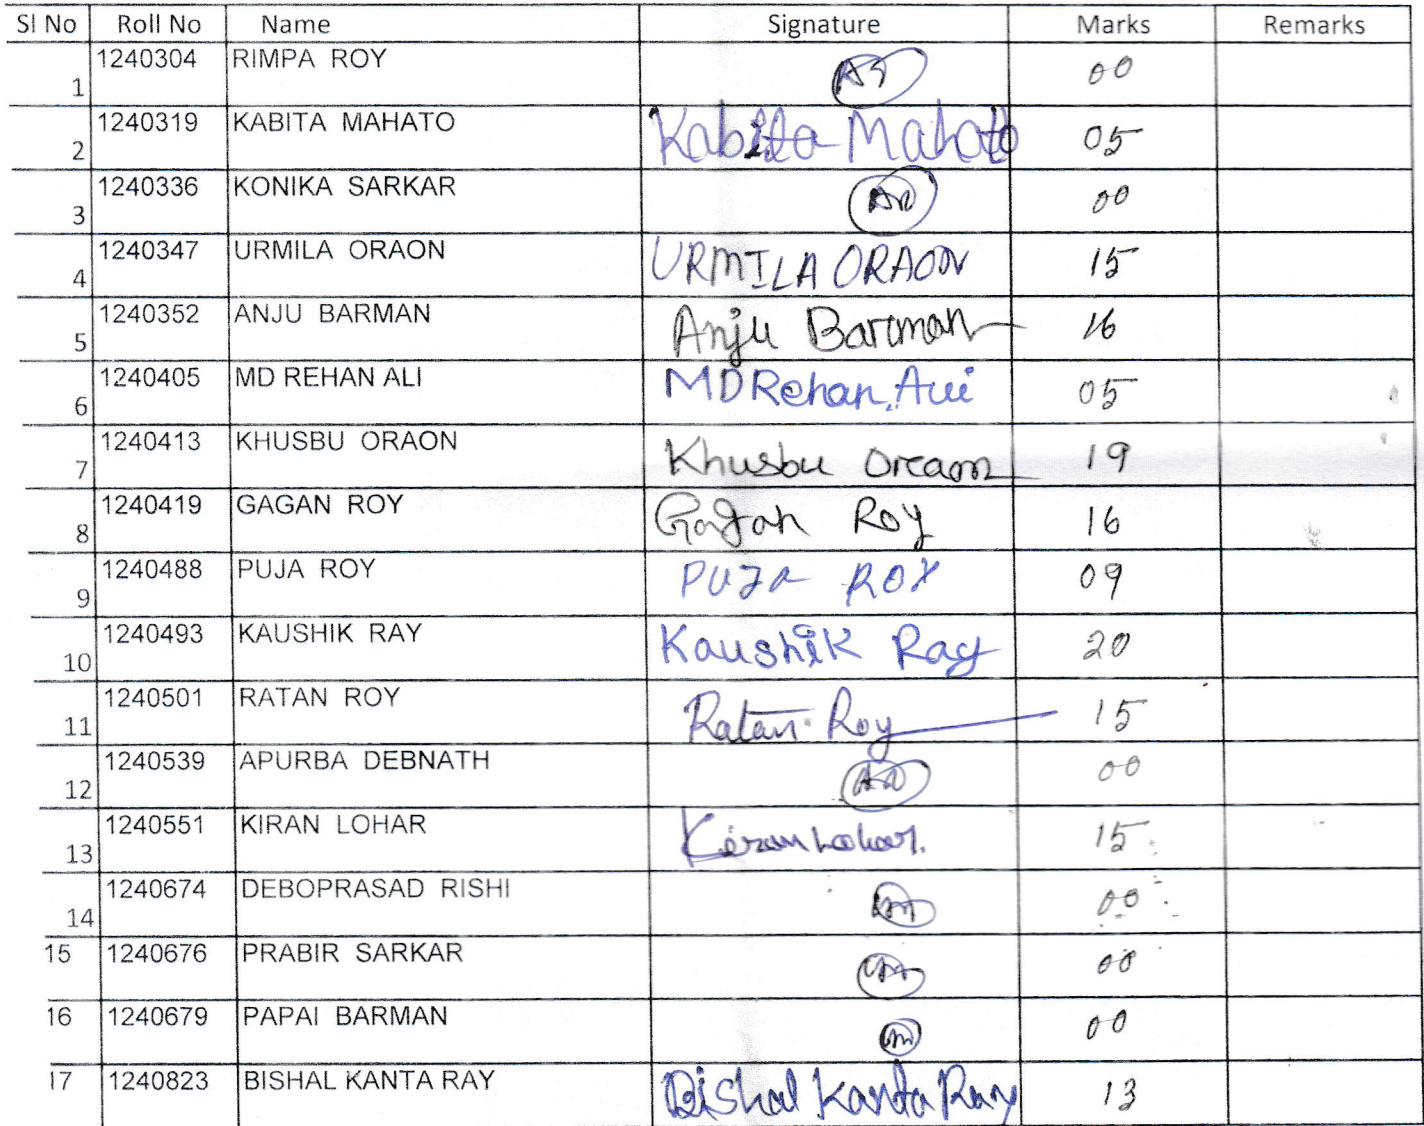 Sl No Roll No Name Signature Marks Remarks
1 1240304 RIMPA ROY 00
2 1240319 KABITA MAHATO Kabita Mahato 05
3 1240336 KONIKA SARKAR 00
4 1240347 URMILA ORAON URMILA ORAON 15
5 1240352 ANJU BARMAN Anju Barman 16
6 1240405 MD REHAN ALI MD Rehan Ali 05
7 1240413 KHUSBU ORAON Khusbu Oraon 19
8 1240419 GAGAN ROY Gagan Roy 16
9 1240488 PUJA ROY PUJA ROY 09
10 1240493 KAUSHIK RAY Kaushik Ray 20
11 1240501 RATAN ROY Ratan Roy 15
12 1240539 APURBA DEBNATH 00
13 1240551 KIRAN LOHAR Kiran Lohar. 15
14 1240674 DEBOPRASAD RISHI 00
15 1240676 PRABIR SARKAR 00
16 1240679 PAPAI BARMAN 00
17 1240823 BISHAL KANTA RAY Bishal Kanta Ray 13